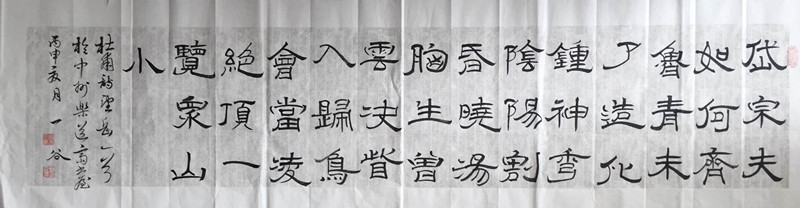 岱宗夫
如何齊
魯青未
了造化
鍾神秀
陰陽割
昏曉湯
胸生曾
雲决眥
入歸鳥
會當凌
絶頂一
覽衆山
小
杜甫詩望岳一首
於中州樂道齋
丙申亥月 一谷